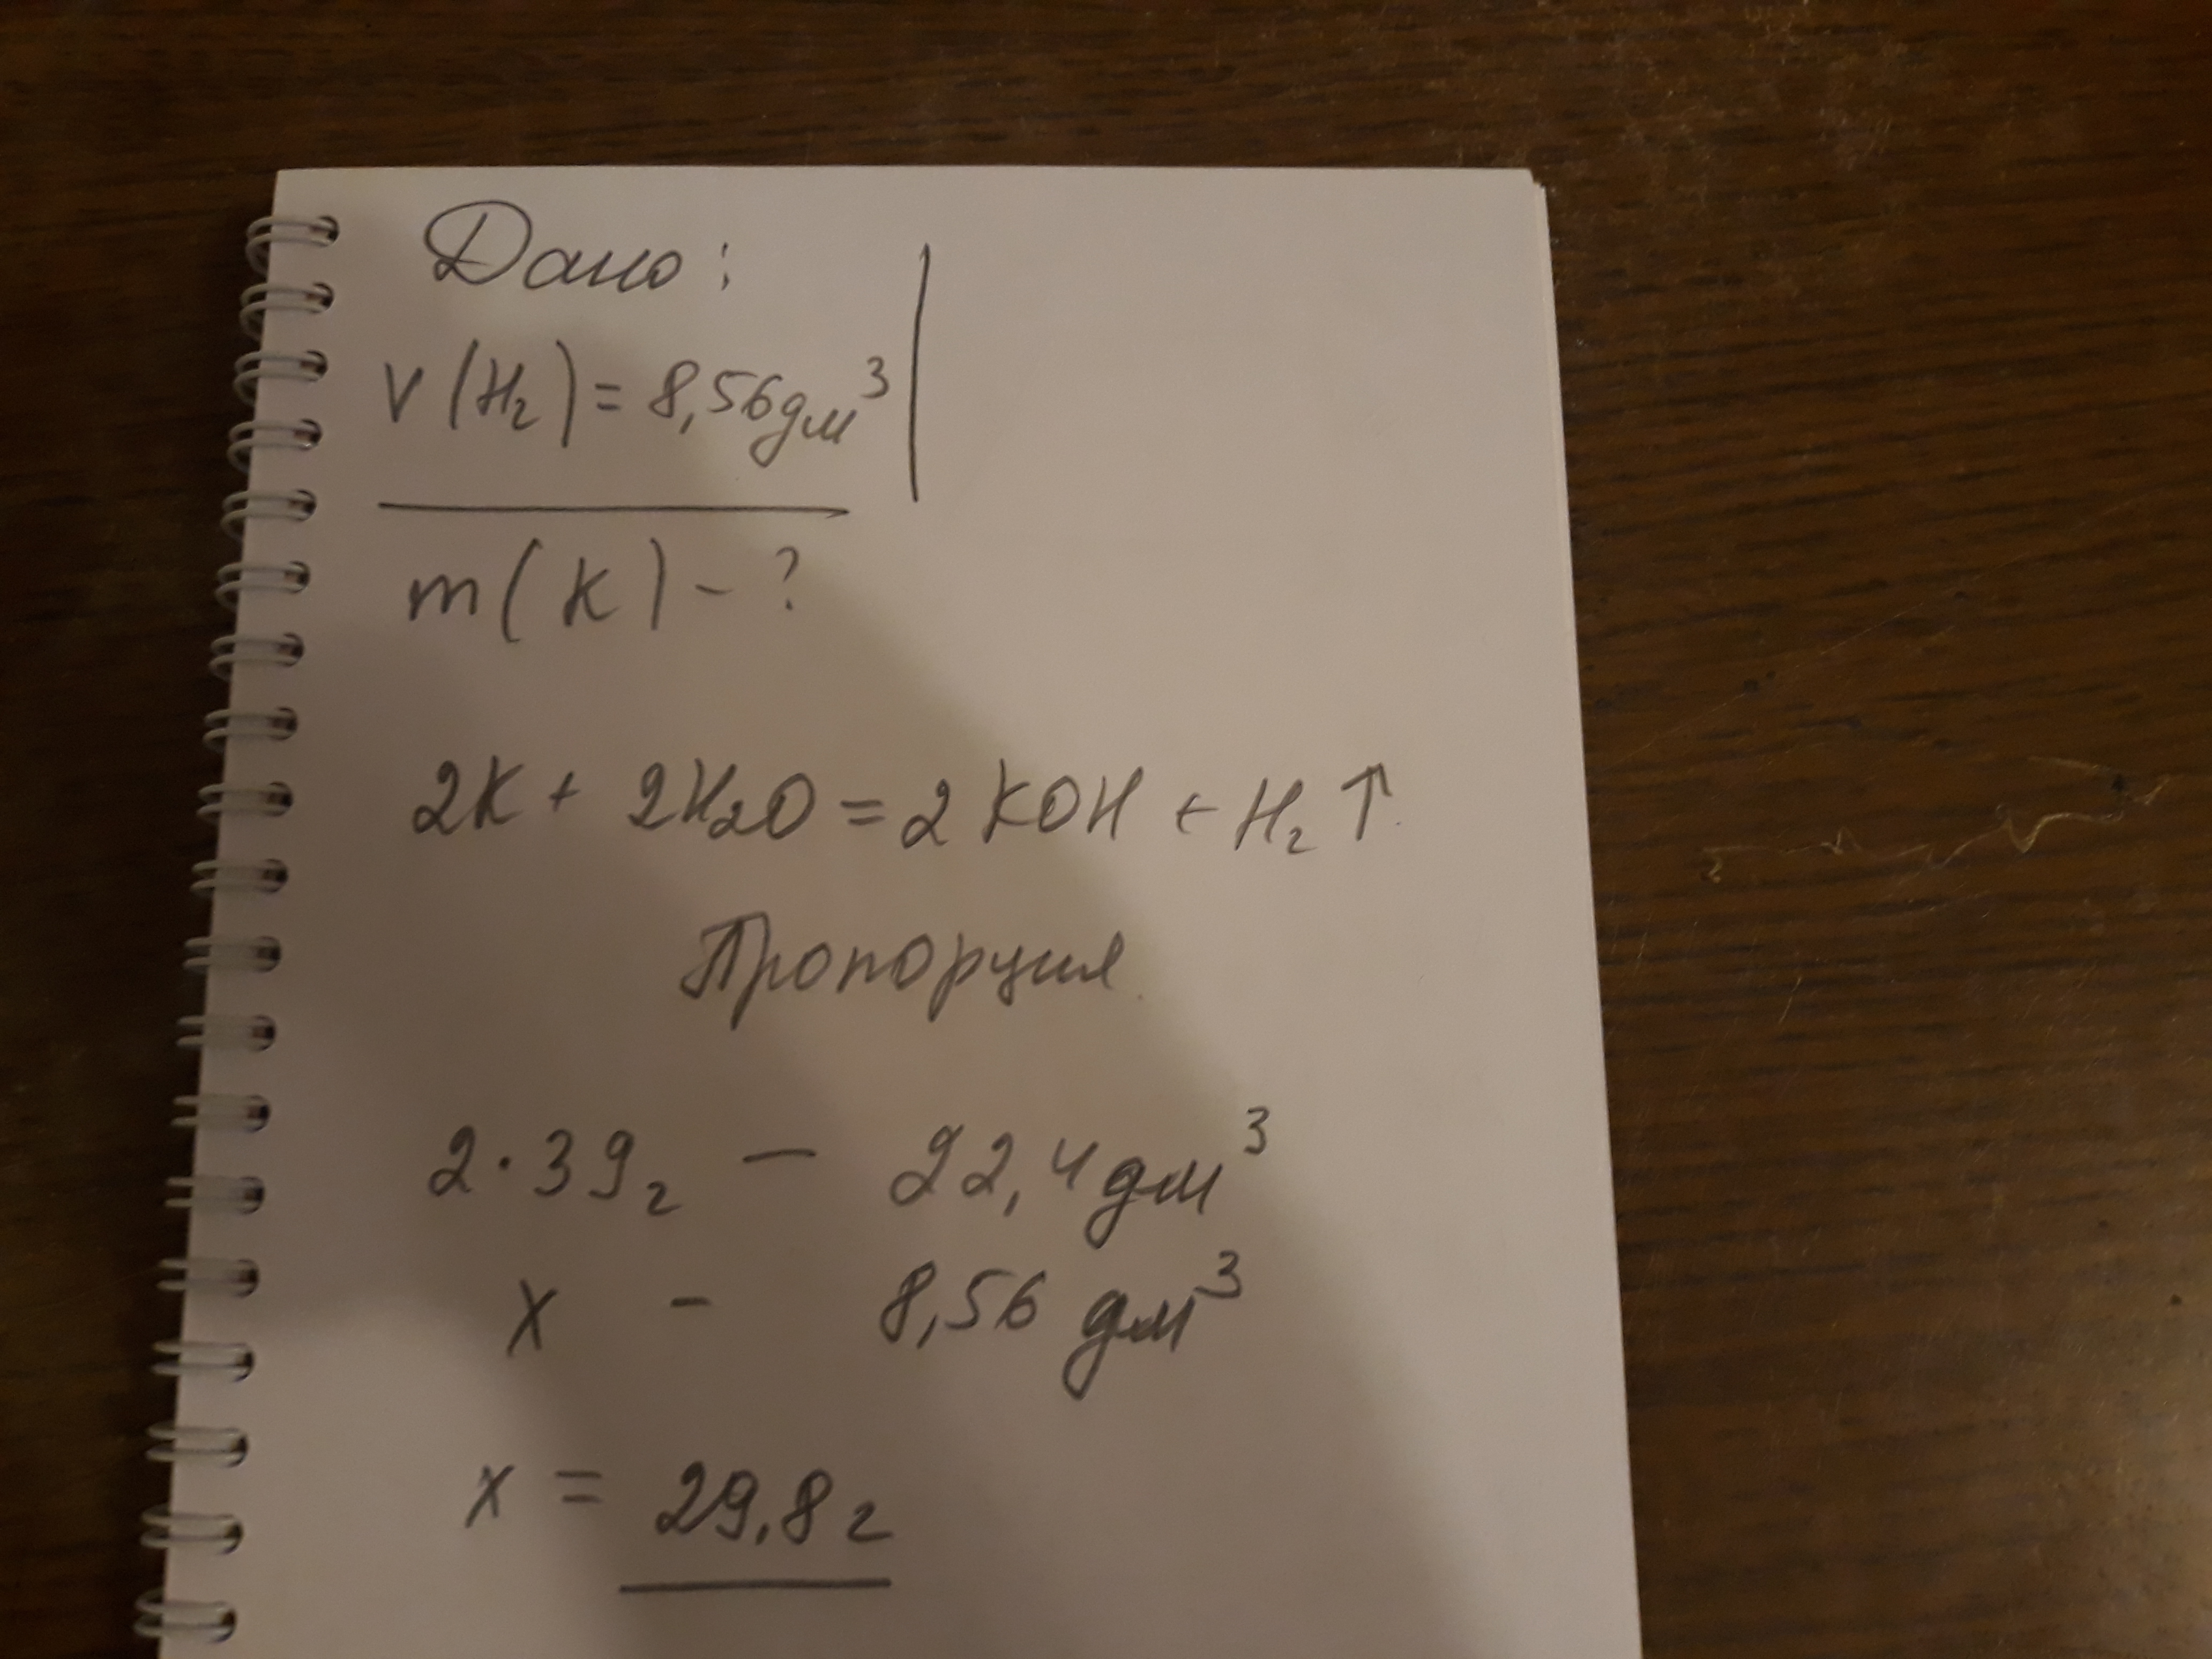 Дано:
V(H₂) = 8,56 дм³
m(K) - ?
2K + 2H₂O = 2KOH + H₂↑
Пропорция.
2·39г — 22,4 дм³
x - 8,56 дм³
x = 29,8 г